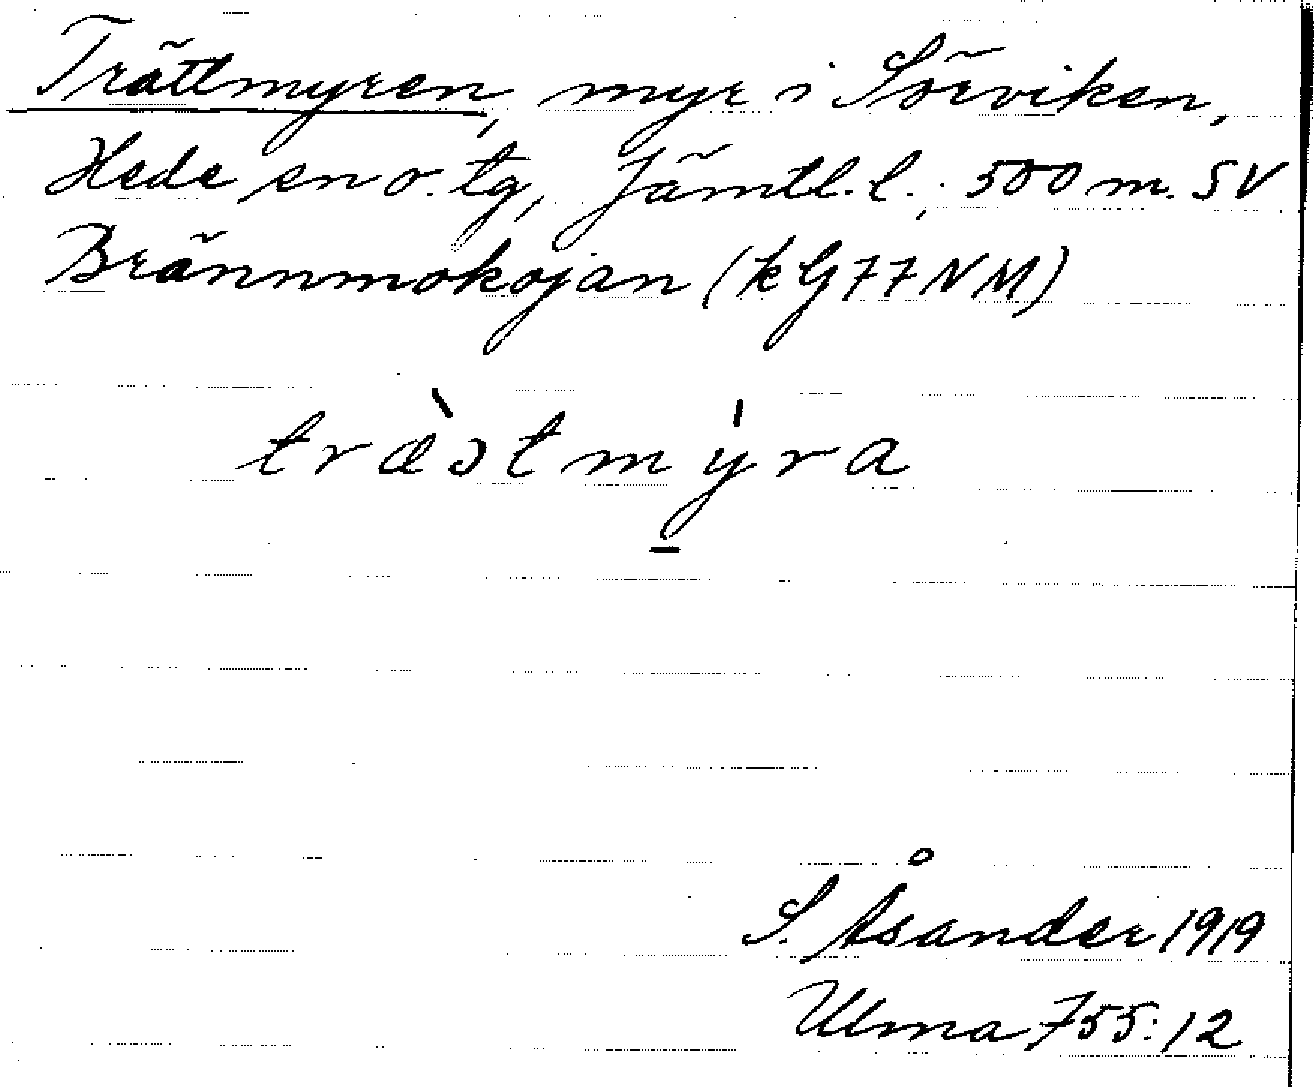 Trättmyren, myr i Sörviken,
Hede sn o. tg, Jämtl. l.; 500 m. SV
Brännmokojan (kG77NM)
træ̀ɔtmẏra
S. Åsander 1919
Ulma 755:12